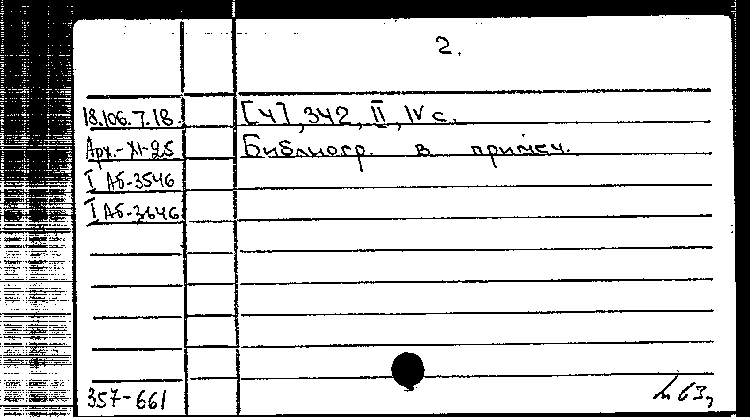 2.
18.106.7.18. [4], 342, II, IV с.
Арх.-XI-25 Библиогр. в примеч.
I Аб-3546
I Аб-3646
357-661